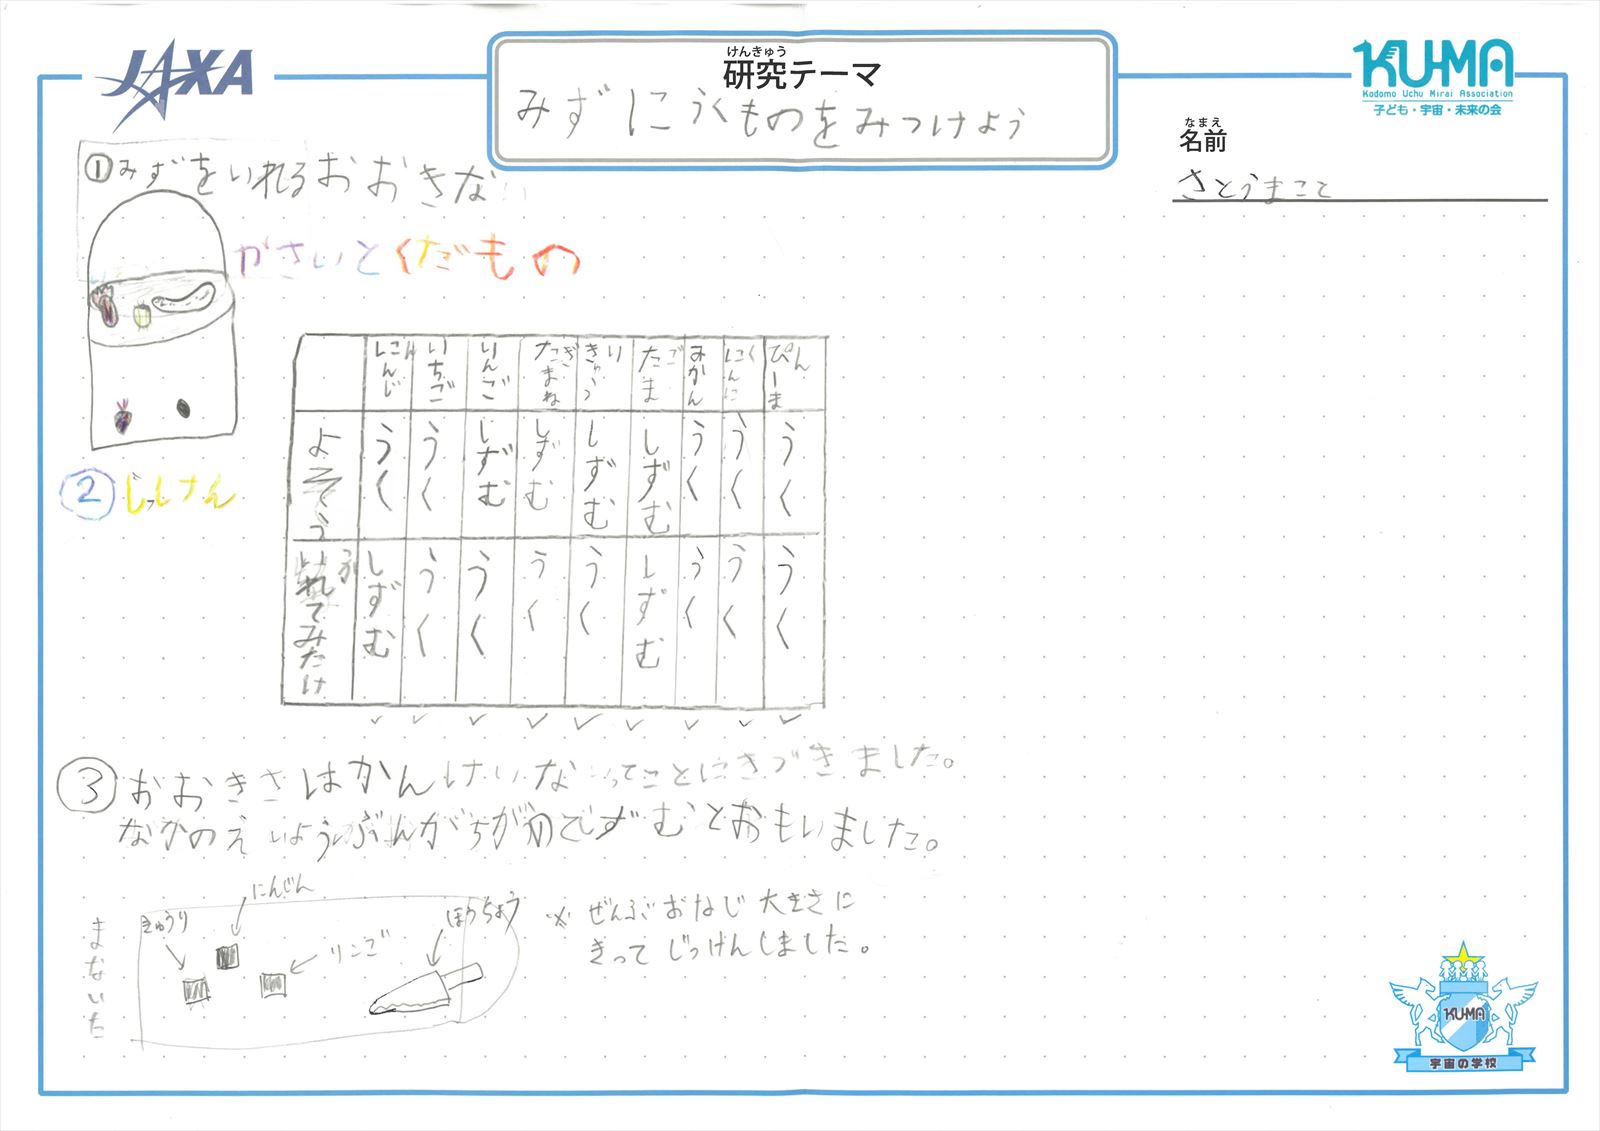 JAXA
けんきゅう
研究テーマ
みずにうくものをみつけよう
KU-MA
Kodomo Uchu Mirai Association
子ども・宇宙・未来の会
なまえ
名前
さとうまこと
①みずをいれるおおきな
やさいとくだもの
②じっけん
にんじん いちご りんご たまねぎ きゅうり たまご みかん にんにく ぴーまん
よそう うく うく しずむ しずむ しずむ しずむ うく うく うく
いれてみたけっか しずむ うく うく うく うく しずむ うく うく うく
③おおきさはかんけいないってことにきづきました。
なかのえいようぶんがちがうのでしずむとおもいました。
まないた
きゅうり
にんじん
りんご
ほうちょう
※ぜんぶおなじ大きさに
きってじっけんしました。
KU-MA
宇宙の学校